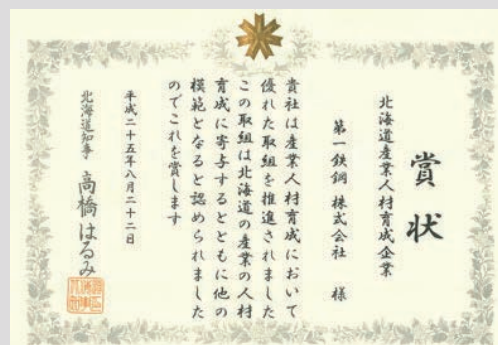 賞状
北海道産業人材育成企業
第一鉄鋼 株式会社 様
貴社は産業人材育成において
優れた取組を推進されました
この取組は北海道の産業の人材
育成に寄与するとともに他の
模範となると認められました
のでこれを賞します
平成二十五年八月二十二日
北海道知事 高橋はるみ